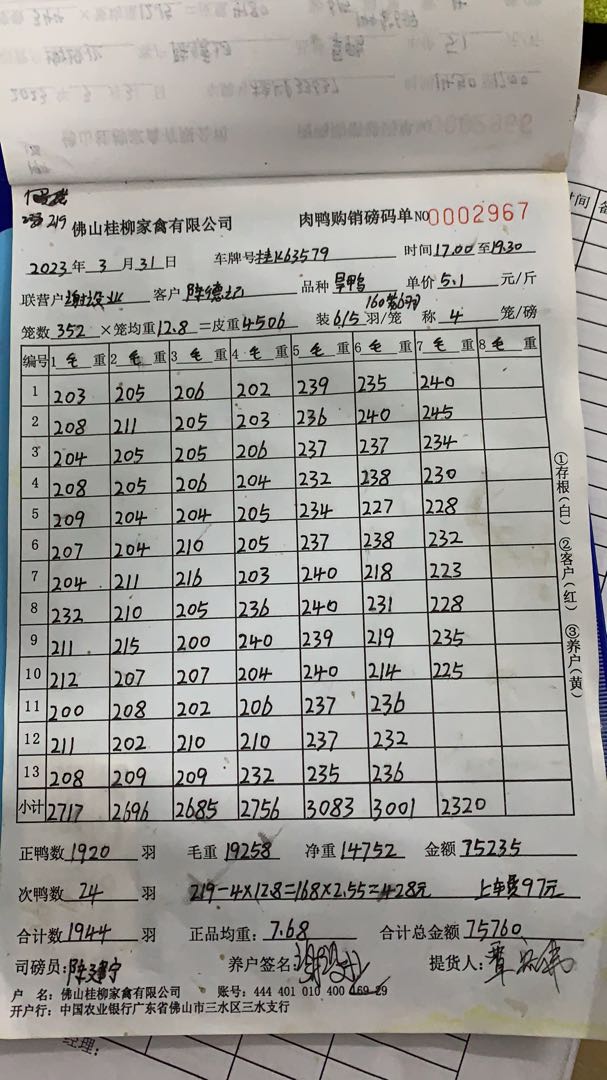 2弱 219
佛山桂柳家禽有限公司 肉鸭购销磅码单 NO 0002967
2023 年 3 月 31 日 车牌号 桂K63579 时间 17.00 至 19.30
联营户 客户 陈德 品种 旱鸭 单价 5.1 元/斤
160笼6羽
笼数 352 ×笼均重 12.8 =皮重 4506 装 6/5 羽/笼 称 4 笼/磅
编号 1 毛 重 2 毛 重 3 毛 重 4 毛 重 5 毛 重 6 毛 重 7 毛 重 8 毛 重
1 203 205 206 202 239 235 240
2 208 211 205 203 236 240 245
3 204 205 205 206 237 237 234
4 208 205 206 204 232 238 230
5 209 204 204 205 234 227 228
6 207 204 210 205 237 238 232
7 204 211 216 203 240 218 223
8 232 210 205 236 240 231 228
9 211 215 200 240 239 219 235
10 212 207 207 204 240 214 225
11 200 208 202 206 237 236
12 211 202 210 210 237 232
13 208 209 209 232 235 236
小计 2717 2696 2685 2756 3083 3001 2320
①存根(白) ②客户(红) ③养户(黄)
正鸭数 1920 羽 毛重 19258 净重 14752 金额 75235
次鸭数 24 羽 219-4×12.8=168×2.55=428元 上车费97元
合计数 1944 羽 正品均重: 7.68 合计总金额 75760
司磅员: 陈建宁 养户签名: 提货人:
户 名: 佛山桂柳家禽有限公司 账号: 444 401 010 400 469 29
开户行: 中国农业银行广东省佛山市三水区三水支行
经理:
时间 备